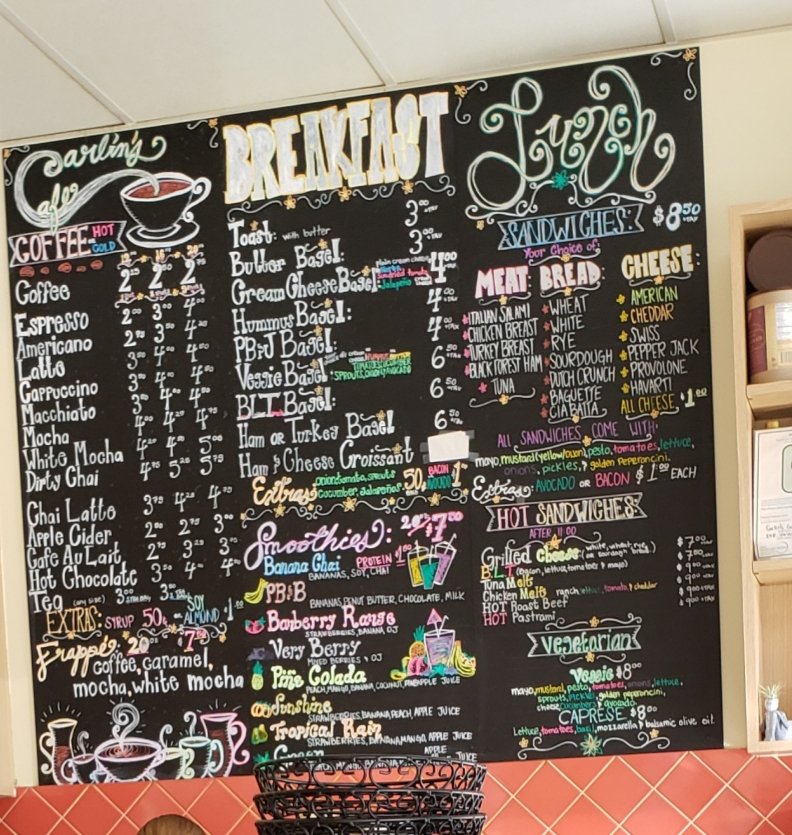 Carlin's
Cafe
COFFEE HOT or COLD
Coffee 2²⁵ 2⁵⁰ 2⁷⁵
Espresso
Americano
Latte
Cappuccino
Macchiato
Mocha
White Mocha
Dirty Chai
Chai Latte
Apple Cider
Cafe Au Lait
Hot Chocolate
Tea (any size)
EXTRAS: SYRUP 50¢ SOY ALMOND
Frappe: 20oz
coffee, caramel,
mocha, white mocha
BREAKFAST
Toast: with butter 3⁰⁰ +TAX
Butter Bagel: 3⁰⁰ +TAX
Cream Cheese Bagel: 4⁰⁰
Hummus Bagel: 4⁰⁰
PB&J Bagel: 4⁰⁰
Veggie Bagel: 6⁵⁰
SPROUTS, ONION, AVOCADO
BLT Bagel: 6⁵⁰
Ham or Turkey Bagel 6⁵⁰
Ham & Cheese Croissant
Extras: onion, tomato, sprouts
cucumber, Jalapeños 50¢ BACON AVOCADO 1⁰⁰
Smoothies: 20oz $7⁰⁰
Banana Chai PROTEIN $1⁰⁰
BANANAS, SOY, CHAI
PB&B
BANANAS, PENUT BUTTER, CHOCOLATE, MILK
Banberry Range
STRAWBERRIES, BANANA, OJ
Very Berry
MIXED BERRIES & OJ
Pine Colada
PEACH, MANGO, BANANA, COCONUT, PINEAPPLE JUICE
Sunshine
STRAWBERRIES, BANANA, PEACH, APPLE JUICE
Tropical Rain
STRAWBERRIES, BANANA, MANGO, APPLE JUICE
Green
APPLE JUICE
Lunch
SANDWICHES: $8⁵⁰ +TAX
Your Choice of:
MEAT:
ITALIAN SALAMI
CHICKEN BREAST
TURKEY BREAST
BLACK FOREST HAM
TUNA
BREAD:
WHEAT
WHITE
RYE
SOURDOUGH
DUTCH CRUNCH
BAGUETTE
CIABATTA
CHEESE:
AMERICAN
CHEDDAR
SWISS
PEPPER JACK
PROVOLONE
HAVARTI
ALL CHEESE $1⁰⁰
ALL SANDWICHES COME WITH:
mayo, mustard (yellow/dijon), pesto, tomatoes, lettuce,
onions, pickles, & golden Peperoncini.
Extras: AVOCADO or BACON $1⁰⁰ EACH
HOT SANDWICHES:
AFTER 11:00
Grilled cheese: (white, wheat, rye, or sourdough bread) $7⁰⁰ +TAX
B.L.T (bacon, lettuce, tomatoes & mayo)
Tuna Melt
Chicken Melt ranch, lettuce, tomato, & cheddar
HOT Roast Beef
HOT Pastrami
vegetarian
Veggie $8⁰⁰
mayo, mustard, pesto, tomatoes, onions, lettuce,
sprouts, pickles, golden peperoncini,
cheese, cucumbers & avocado.
CAPRESE $8⁰⁰
Lettuce, tomatoes, basil, mozzarella & balsamic olive oil